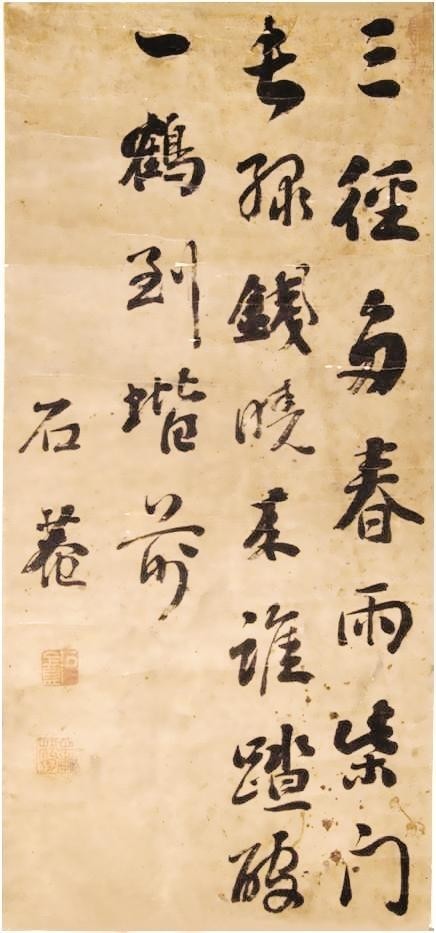 三徑多春雨柴門
長綠錢曉來誰踏破
一鶴到堦前
石菴